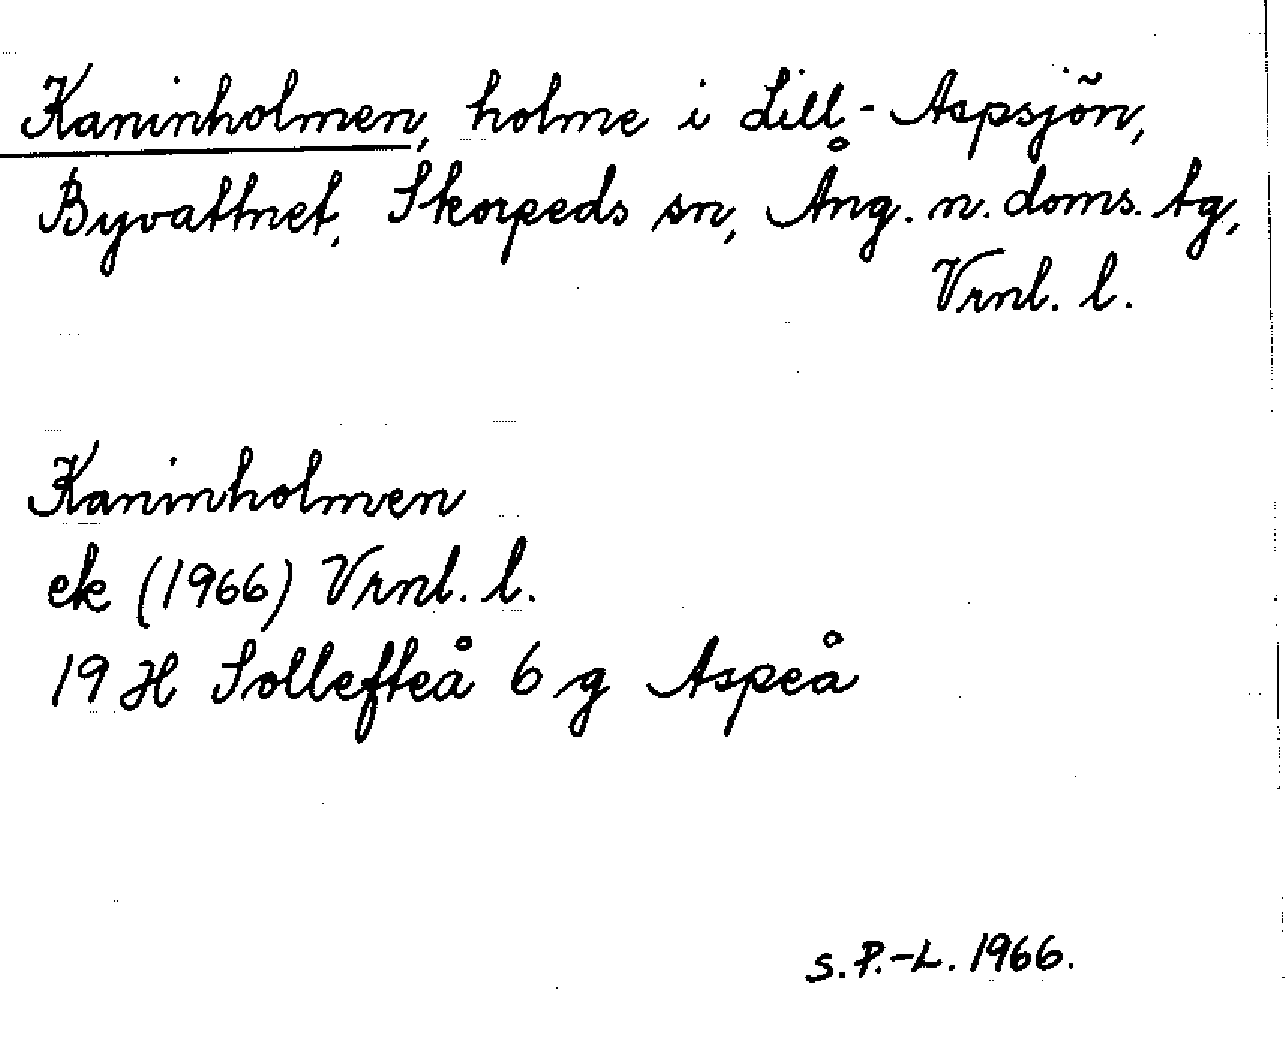 Kaninholmen, holme i Lill-Aspsjön,
Byvattnet, Skorpeds sn, Ång. n. doms. tg,
Vrnl. l.
Kaninholmen
ek (1966) Vrnl. l.
19 H Sollefteå 6 g Aspeå
S. P.-L. 1966.